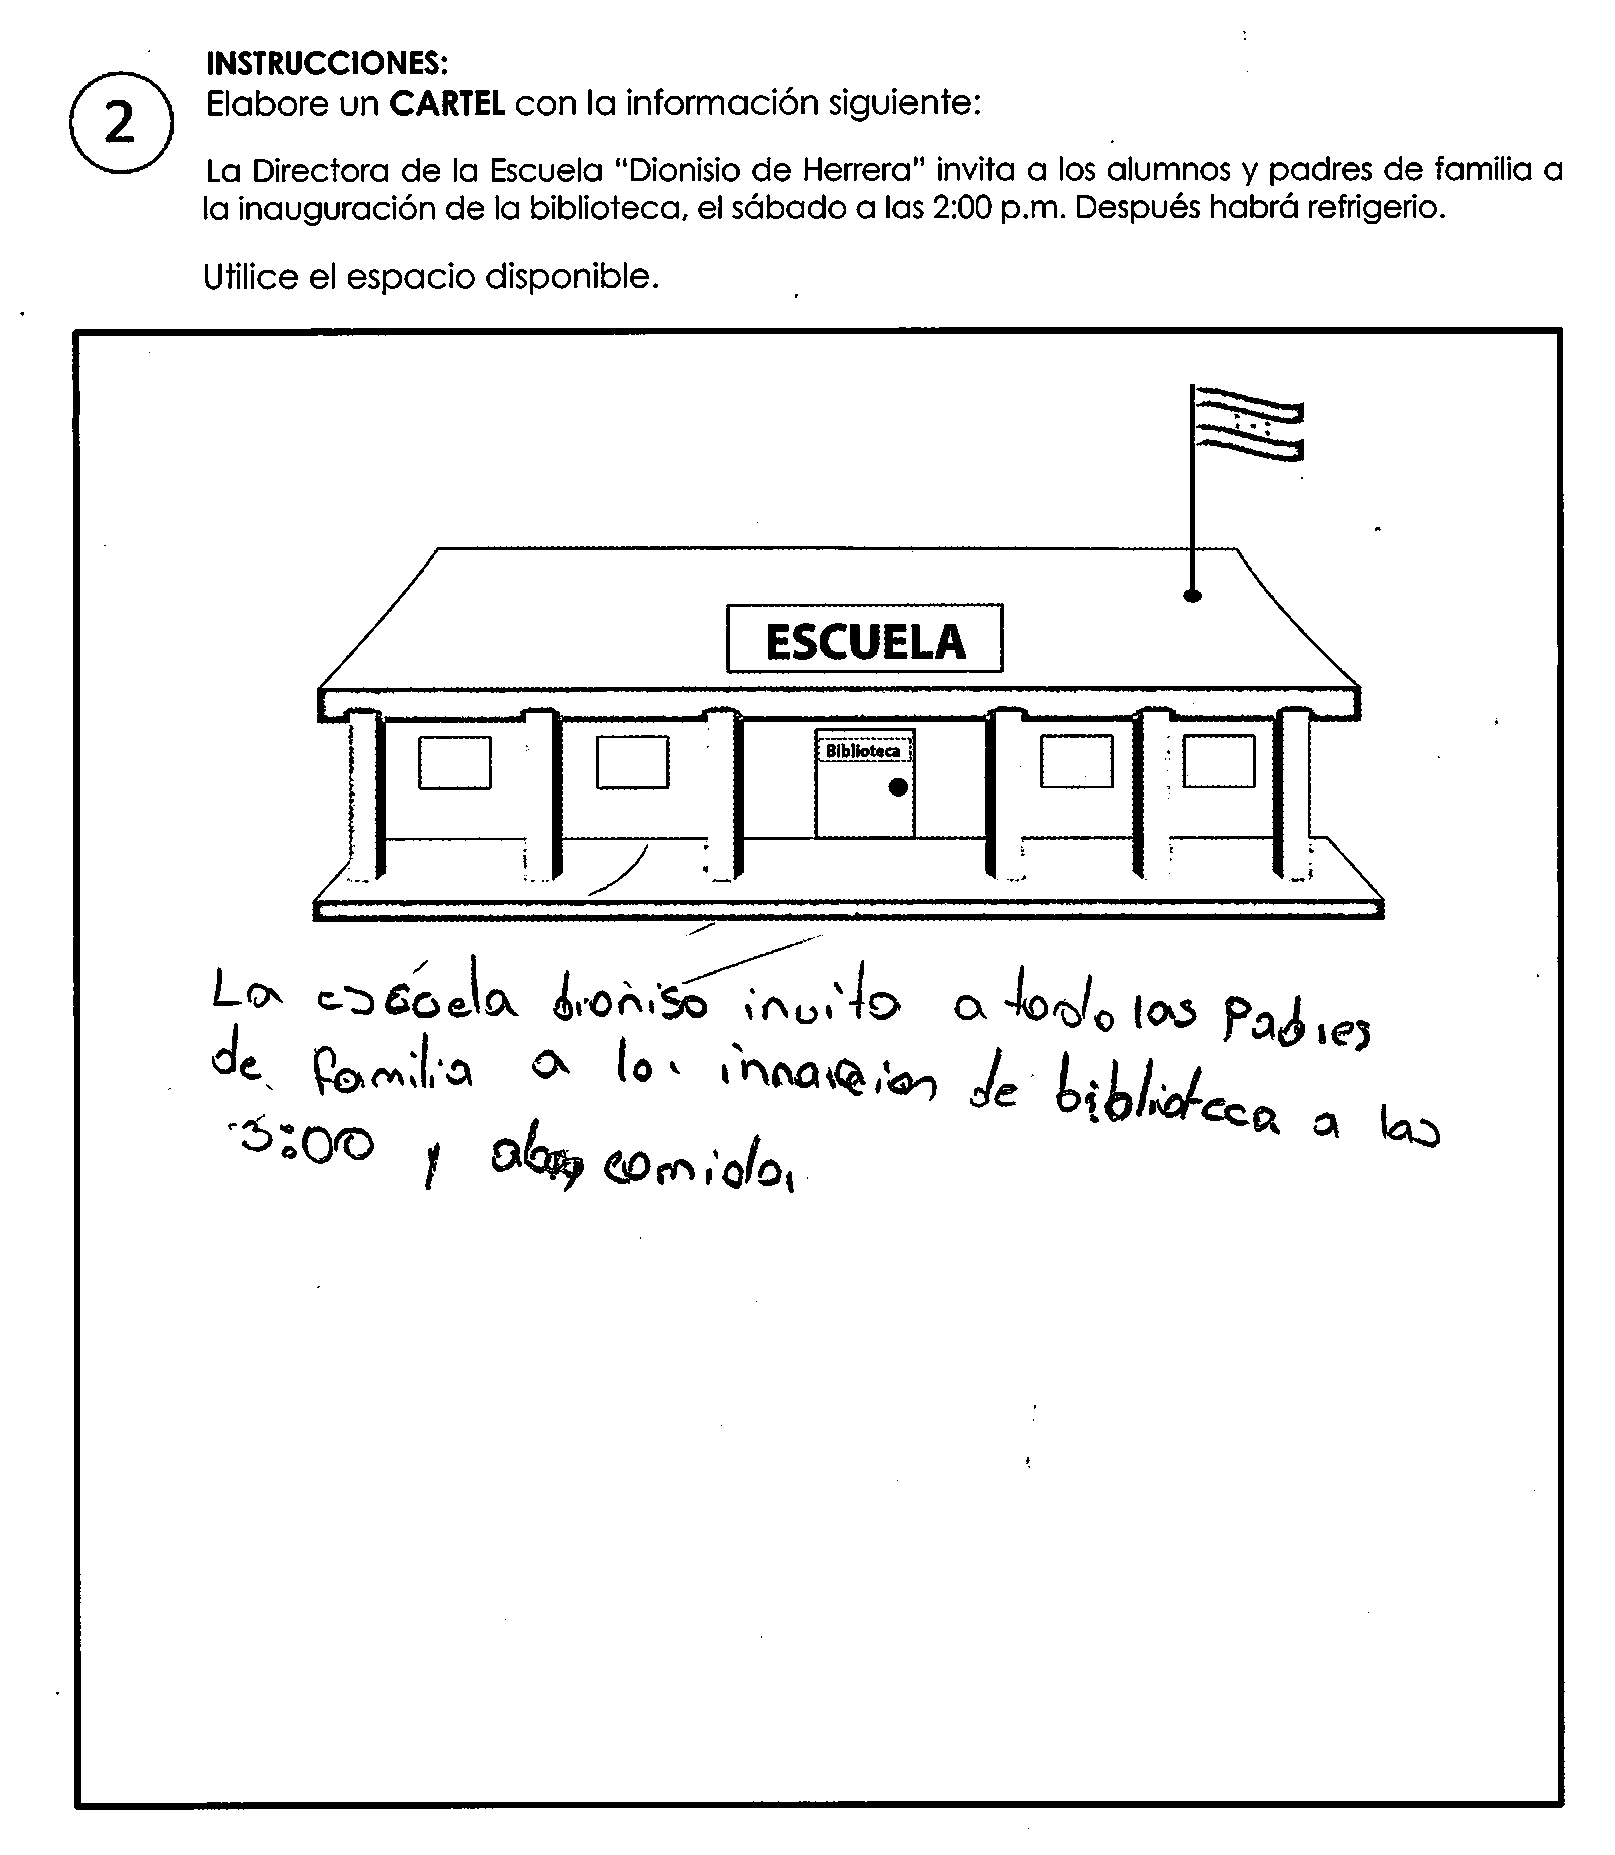 INSTRUCCIONES:
2
Elabore un CARTEL con la información siguiente:
La Directora de la Escuela "Dionisio de Herrera" invita a los alumnos y padres de familia a
la inauguración de la biblioteca, el sábado a las 2:00 p.m. Después habrá refrigerio.
Utilice el espacio disponible.
ESCUELA
Biblioteca
La escuela dioniso invita a todo las Padres
de familia a la de biblioteca a las
3:00 y comida